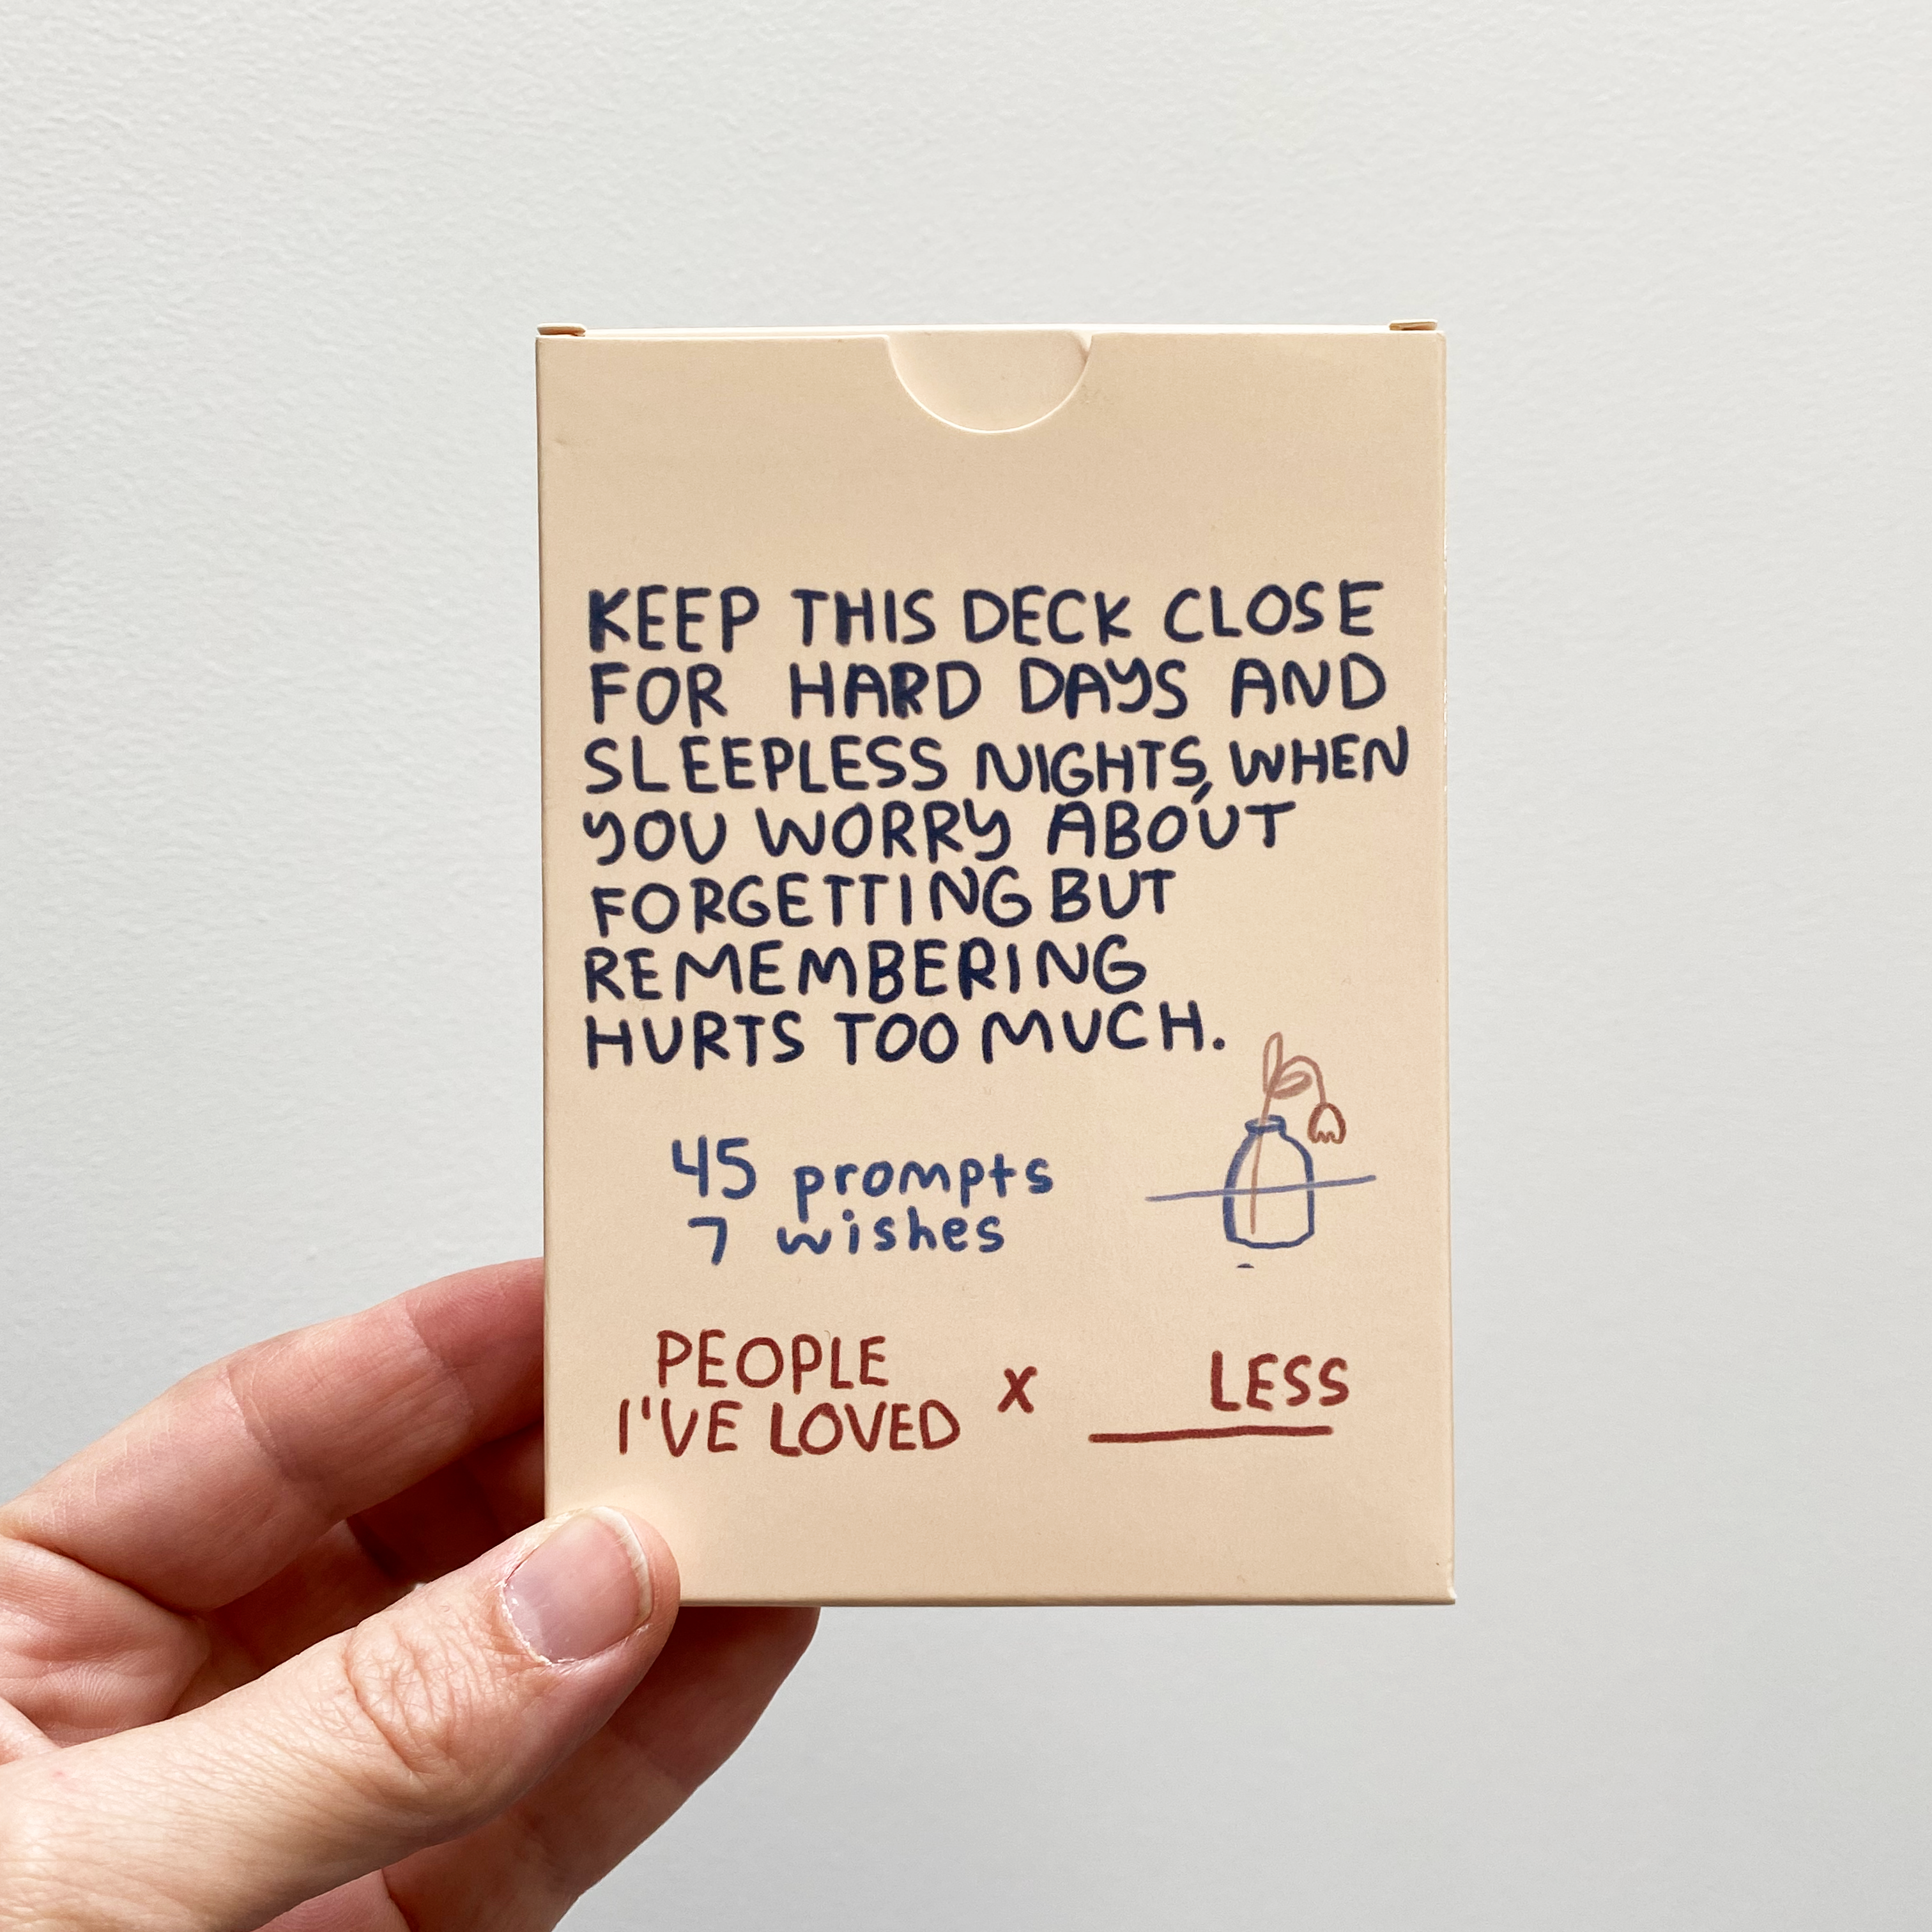 KEEP THIS DECK CLOSE
FOR HARD DAYS AND
SLEEPLESS NIGHTS, WHEN
YOU WORRY ABOUT
FORGETTING BUT
REMEMBERING
HURTS TOO MUCH.
45 prompts
7 wishes
PEOPLE
I'VE LOVED x ____ LESS